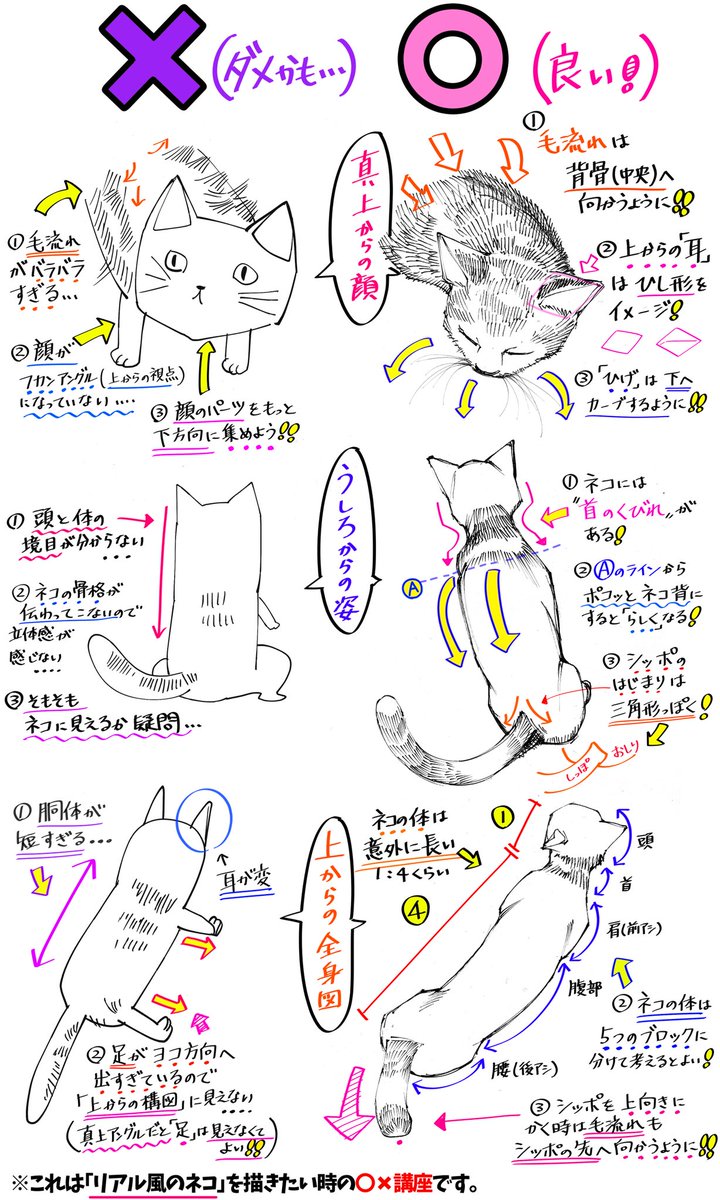 (ダメかも…)
(良い!)
真上からの顔
①毛流れ
がバラバラ
すぎる…
②顔が
フカンアングル(上からの視点)
になっていない….
③顔のパーツをもっと
下方向に集めよう!!
①
毛流れは
背骨(中央)へ
向かうように!!
②上からの「耳」
はひし形を
イメージ!
③「ひげ」は下へ
カーブするように!!
うしろからの姿
①頭と体の
境目が分からない…
②ネコの骨格が
伝わってこないので
立体感が
感じない…
③そもそも
ネコに見えるか疑問…
①ネコには
"首のくびれ"が
ある!
Ⓐ
②Ⓐのラインから
ポコッとネコ背に
すると「らしく」なる!
③シッポの
はじまりは
三角形っぽく!
しっぽ
おしり
上からの全身図
①胴体が
短すぎる…
耳が変
②足がヨコ方向へ
出すぎているので
「上からの構図」に見えない…
(真上アングルだと「足」は見えなくて
よい!!)
ネコの体は
意外に長い
1:4くらい
①
④
頭
首
肩(前アシ)
腹部
腰(後アシ)
②ネコの体は
5つのブロックに
分けて考えるとよい!
③シッポを上向きに
かく時は毛流れも
シッポの先へ向かうように!
※これは「リアル風のネコ」を描きたい時の○×講座です。